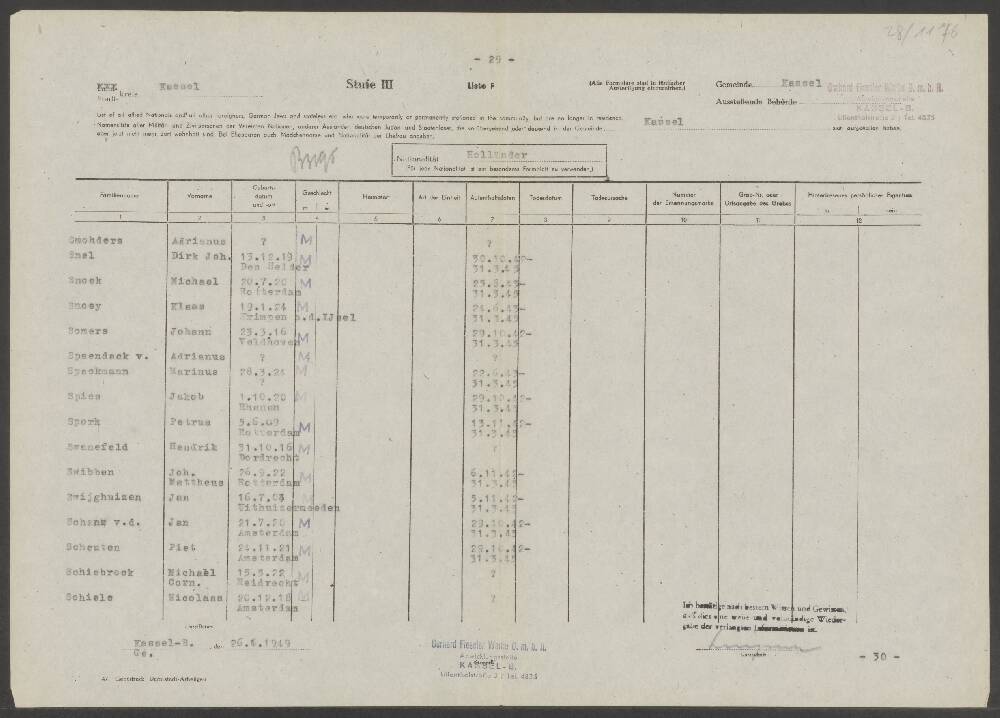 28/1176
- 29 -
Stadtkreis Kassel
Stufe III
Liste F
(Alle Formulare sind in fünffacher Ausfertigung einzureichen.)
Gemeinde Kassel
Ausstellende Behörde
Gerhard Fieseler Werke G. m. b. H.
KASSEL-B.
Lilienthalstraße 3 / Tel. 4835
List of all allied Nationals and all other foreigners, German Jews and stateless etc. who were temporarily or permanently stationed in the community, but are no longer in residence.
Kassel
sich aufgehalten haben,
aber jetzt nicht mehr dort wohnhaft sind. Bei Ehepaaren auch Mädchenname und Nationalität der Ehefrau angeben.
Nationalität Holländer
(Für jede Nationalität ist ein besonderes Formblatt zu verwenden.)
Familienname Vorname Geburtsdatum und -ort Geschlecht Heimatort Art der Einheit Aufenthaltsdaten Todesdatum Todesursache Nummer der Erkennungsmarke Grab-Nr. oder Ortsangabe des Grabes Hinterlassenes persönliches Eigentum
m w ja nein
1 2 3 4 5 6 7 8 9 10 11 12
Smohders Adrianus ? M ?
Snel Dirk Joh. 13.12.19 M 30.10.42-
Den Helder 31.3.45
Snoek Michael 20.7.20 M 23.6.43-
Rotterdam 31.3.45
Snoey Klaas 19.1.24 M 24.6.43-
Krimpen a.d.IJsel 31.3.45
Somers Johann 23.3.16 M 29.10.42-
Veldhoven 31.3.45
Spaendack v. Adrianus ? M ?
Speckmann Marinus 28.3.24 M 22.6.43-
? 31.3.45
Spies Jakob 1.10.20 M 29.10.42-
Rhenen 31.3.45
Spork Petrus 5.6.09 M 13.11.42-
Rotterdam 31.3.45
Swanefeld Hendrik 31.10.16 M ?
Dordrecht
Swibben Joh. 26.9.22 M 6.11.42-
Mattheus Rotterdam 31.3.45
Swijghuizen Jan 16.7.03 M 5.11.42-
Uithuizermeeden 31.3.45
Schans v.d. Jan 21.7.20 M 29.10.42-
Amsterdam 31.3.45
Schouten Piet 24.11.21 M 29.10.42-
Amsterdam 31.3.45
Schiebroek Michael 15.5.22 M ?
Corn. Neidrecht
Schiele Nicolaas 20.12.18 M ?
Amsterdam
Kassel-B. den 26.4.1949
Ge.
Gerhard Fieseler Werke G. m. b. H.
KASSEL-B.
Lilienthalstraße 3 / Tel. 4835
Ich bestätige nach bestem Wissen und Gewissen,
daß dies eine wahre und vollständige Wiedergabe der verlangten Informationen ist.
- 30 -